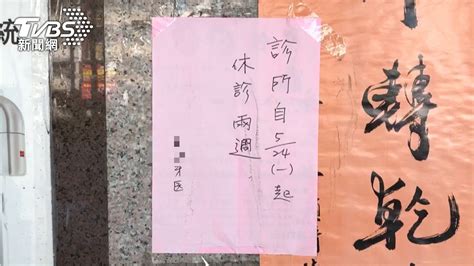 TVBS
新聞網
統
診所自5/24(一)起
休診兩週
牙医
轉乾